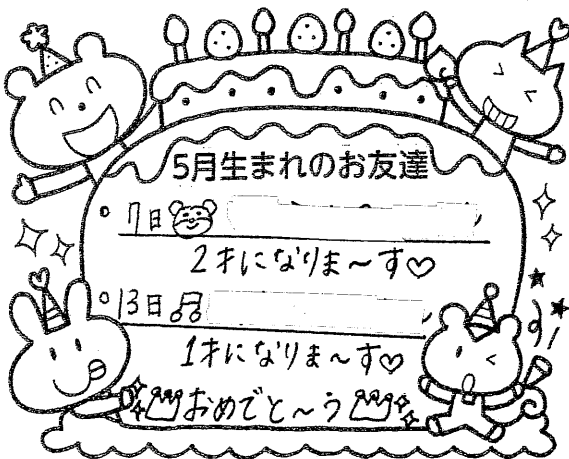 5月生まれのお友達
7日
2才になりま～す♡
13日♫
1才になりま～す♡
おめでと～う